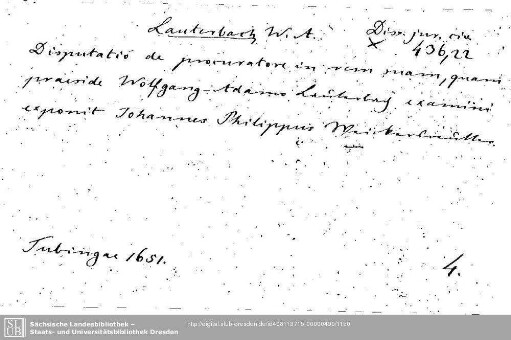 Lauterbach, W. A. Diss. jur. civ.
436,22
Disputatio de procuratore in rem suam, quam
praeside Wolfgang-Adamo Lauterbach examini
exponit Johannes Philippus
Tubingae 1651. 4.
SLUB
Sächsische Landesbibliothek –
Staats- und Universitätsbibliothek Dresden